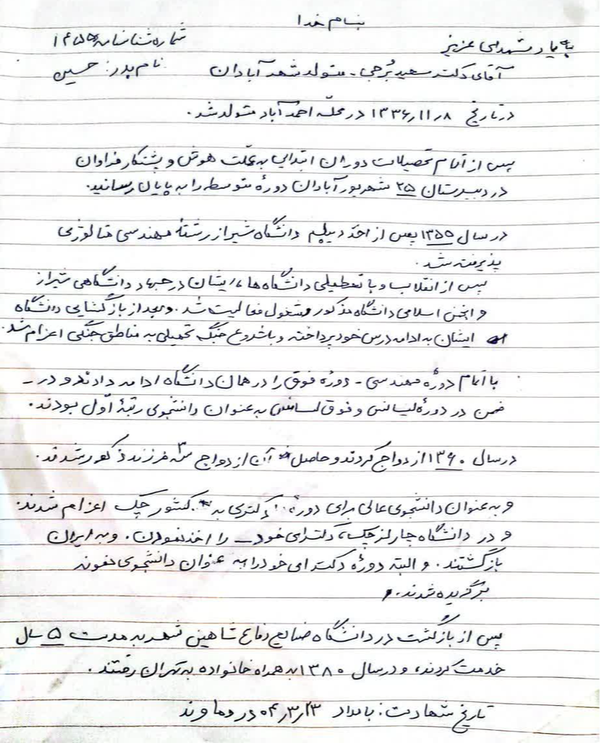 بنام خدا
به یاد شهدای عزیز
شماره شناسنامه ۱۴۵۵
آقای دکتر سعید بُرجی - متولد شهر آبادان
نام پدر: حسین
در تاریخ ۱۳۳۶,۱۱,۸ در محلّه احمدآباد متولد شد.
پس از اتمام تحصیلات دوران ابتدایی به علّت هوش و پشتکار فراوان
در دبیرستان ۲۵ شهریور آبادان دورهٔ متوسطه را به پایان رسانید.
در سال ۱۳۵۵ پس از اخذ دیپلم دانشگاه شیراز رشتهٔ مهندسی متالورژی
پذیرفته شد.
پس از انقلاب و با تعطیلی دانشگاه‌ها، ایشان در جهاد دانشگاهی شیراز
و انجمن اسلامی دانشگاه مذکور مشغول فعالیت شد. و بعد از بازگشایی دانشگاه
ایشان به ادامه درس خود پرداخته و با شروع جنگ تحمیلی به مناطق جنگی اعزام شد.
با اتمام دورهٔ مهندسی - دورهٔ فوق را در همان دانشگاه ادامه دادند و در
ضمن در دورهٔ لیسانس و فوق لیسانس به عنوان دانشجوی رتبهٔ اوّل بودند.
در سال ۱۳۶۰ ازدواج کردند و حاصل آن ازدواج سه فرزند ذکور شد ند.
و به عنوان دانشجوی عالی برای دورهٔ دکتری به کشور چک اعزام شدند.
و در دانشگاه چارلز چک، دکترای خود را اخذ نمودن. و به ایران
بازگشتند. و البته دورهٔ دکترای خود را به عنوان دانشجوی نمونه
برگزیده شدند.
پس از بازگشت در دانشگاه صنایع دفاع شاهین شهر به مدت ۵ سال
خدمت کردند، و در سال ۱۳۸۰ به همراه خانواده به تهران رفتند.
تاریخ شهادت: بامداد ۰۴,۳,۲۳ در دماوند